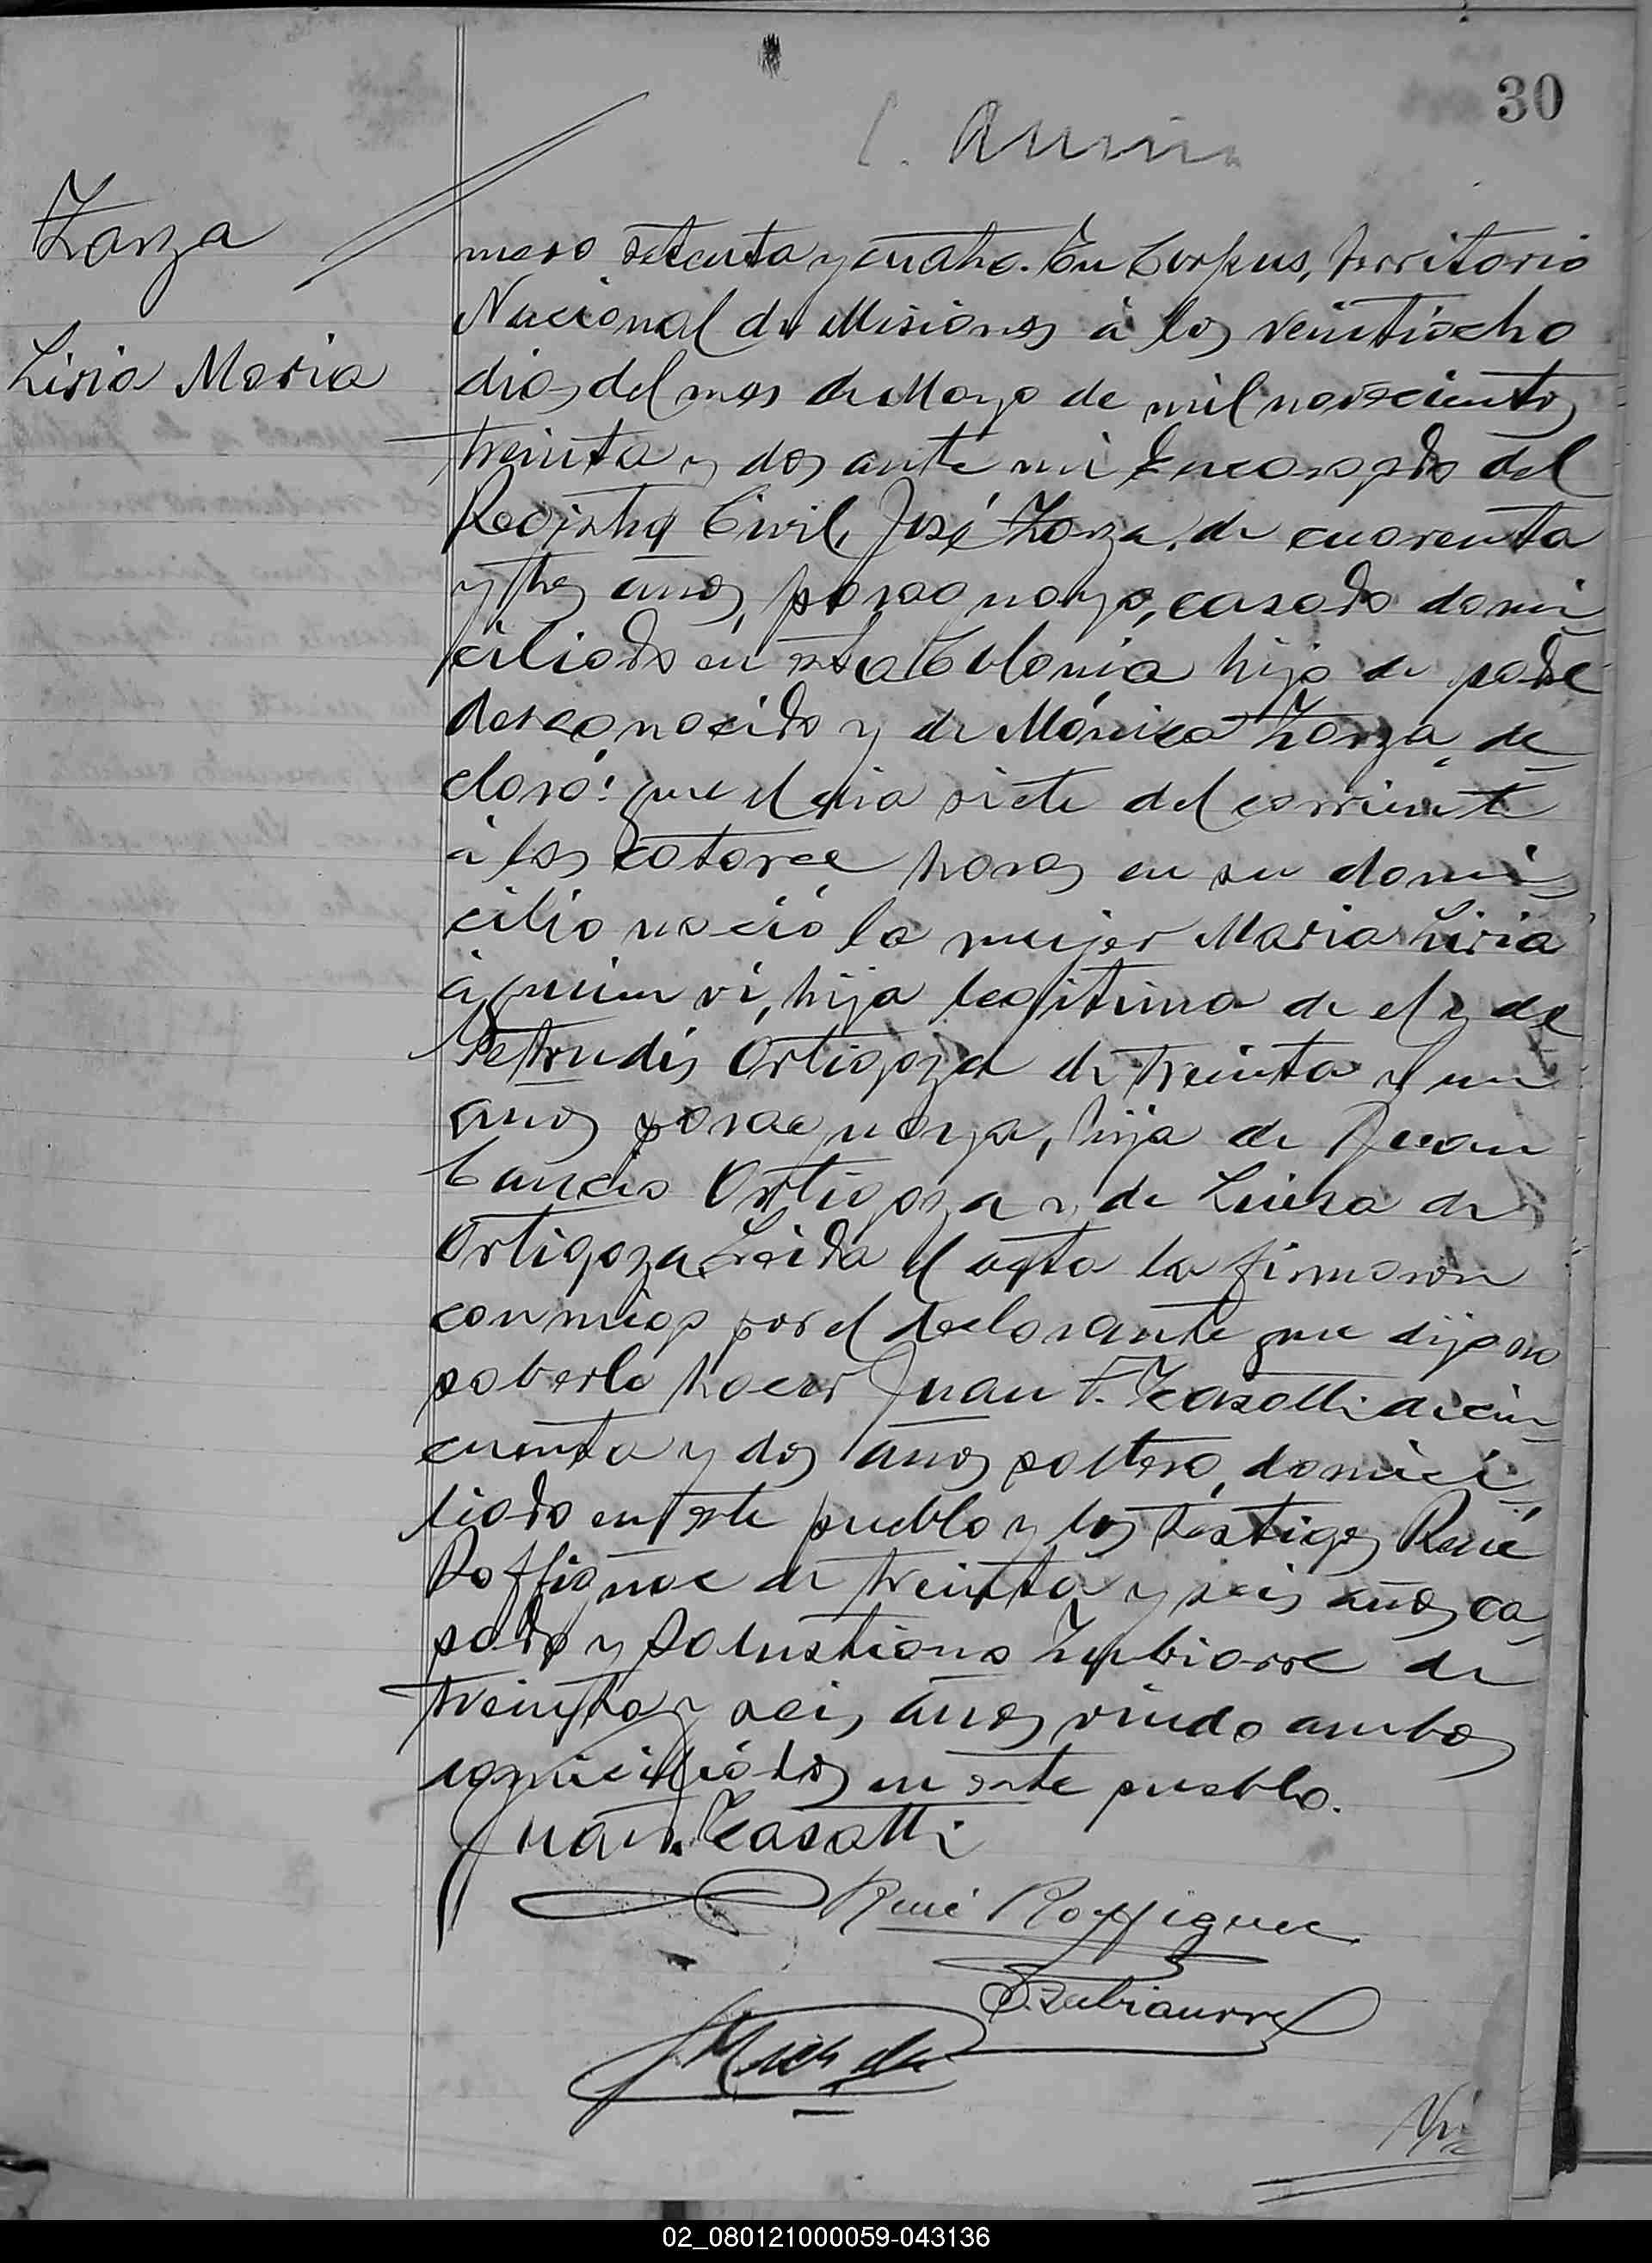 30
Zarza
Liria Maria
mero setenta y cuatro. En Corpus, Territorio
Nacional de Misiones á los veintiocho
dias del mes de Mayo de mil novecientos
treinta y dos ante mi Encargado del
Registro Civil, José Zarza, de cuarenta
y tres años, paraguayo, casado domi
ciliado en esta Colonia hijo de padre
desconocido y de Mónica Zarza, de
claró: que el dia siete del corriente
á las catorce horas en su domi
cilio nació la mujer Maria Liria
á quien vi, hija legitima de el y de
Petrudis Ortigoza de treinta y un
años paraguaya, hija de Juan
Cancio Ortigoza y de Luisa de
Ortigoza Leida el acta la firmaron
conmigo por el declarante que dijo no
saberlo hacer Juan F. Casatti de cin
cuenta y dos años soltero, domici
liado en este pueblo y los testigos René
Roffignac de treinta y seis años ca
sado y Salustiano Zubiarre de
treinta y seis años viudo ambos
domiciliados en este pueblo.
Juan F. Casatti
René Roffignac
S. Zubiaurre